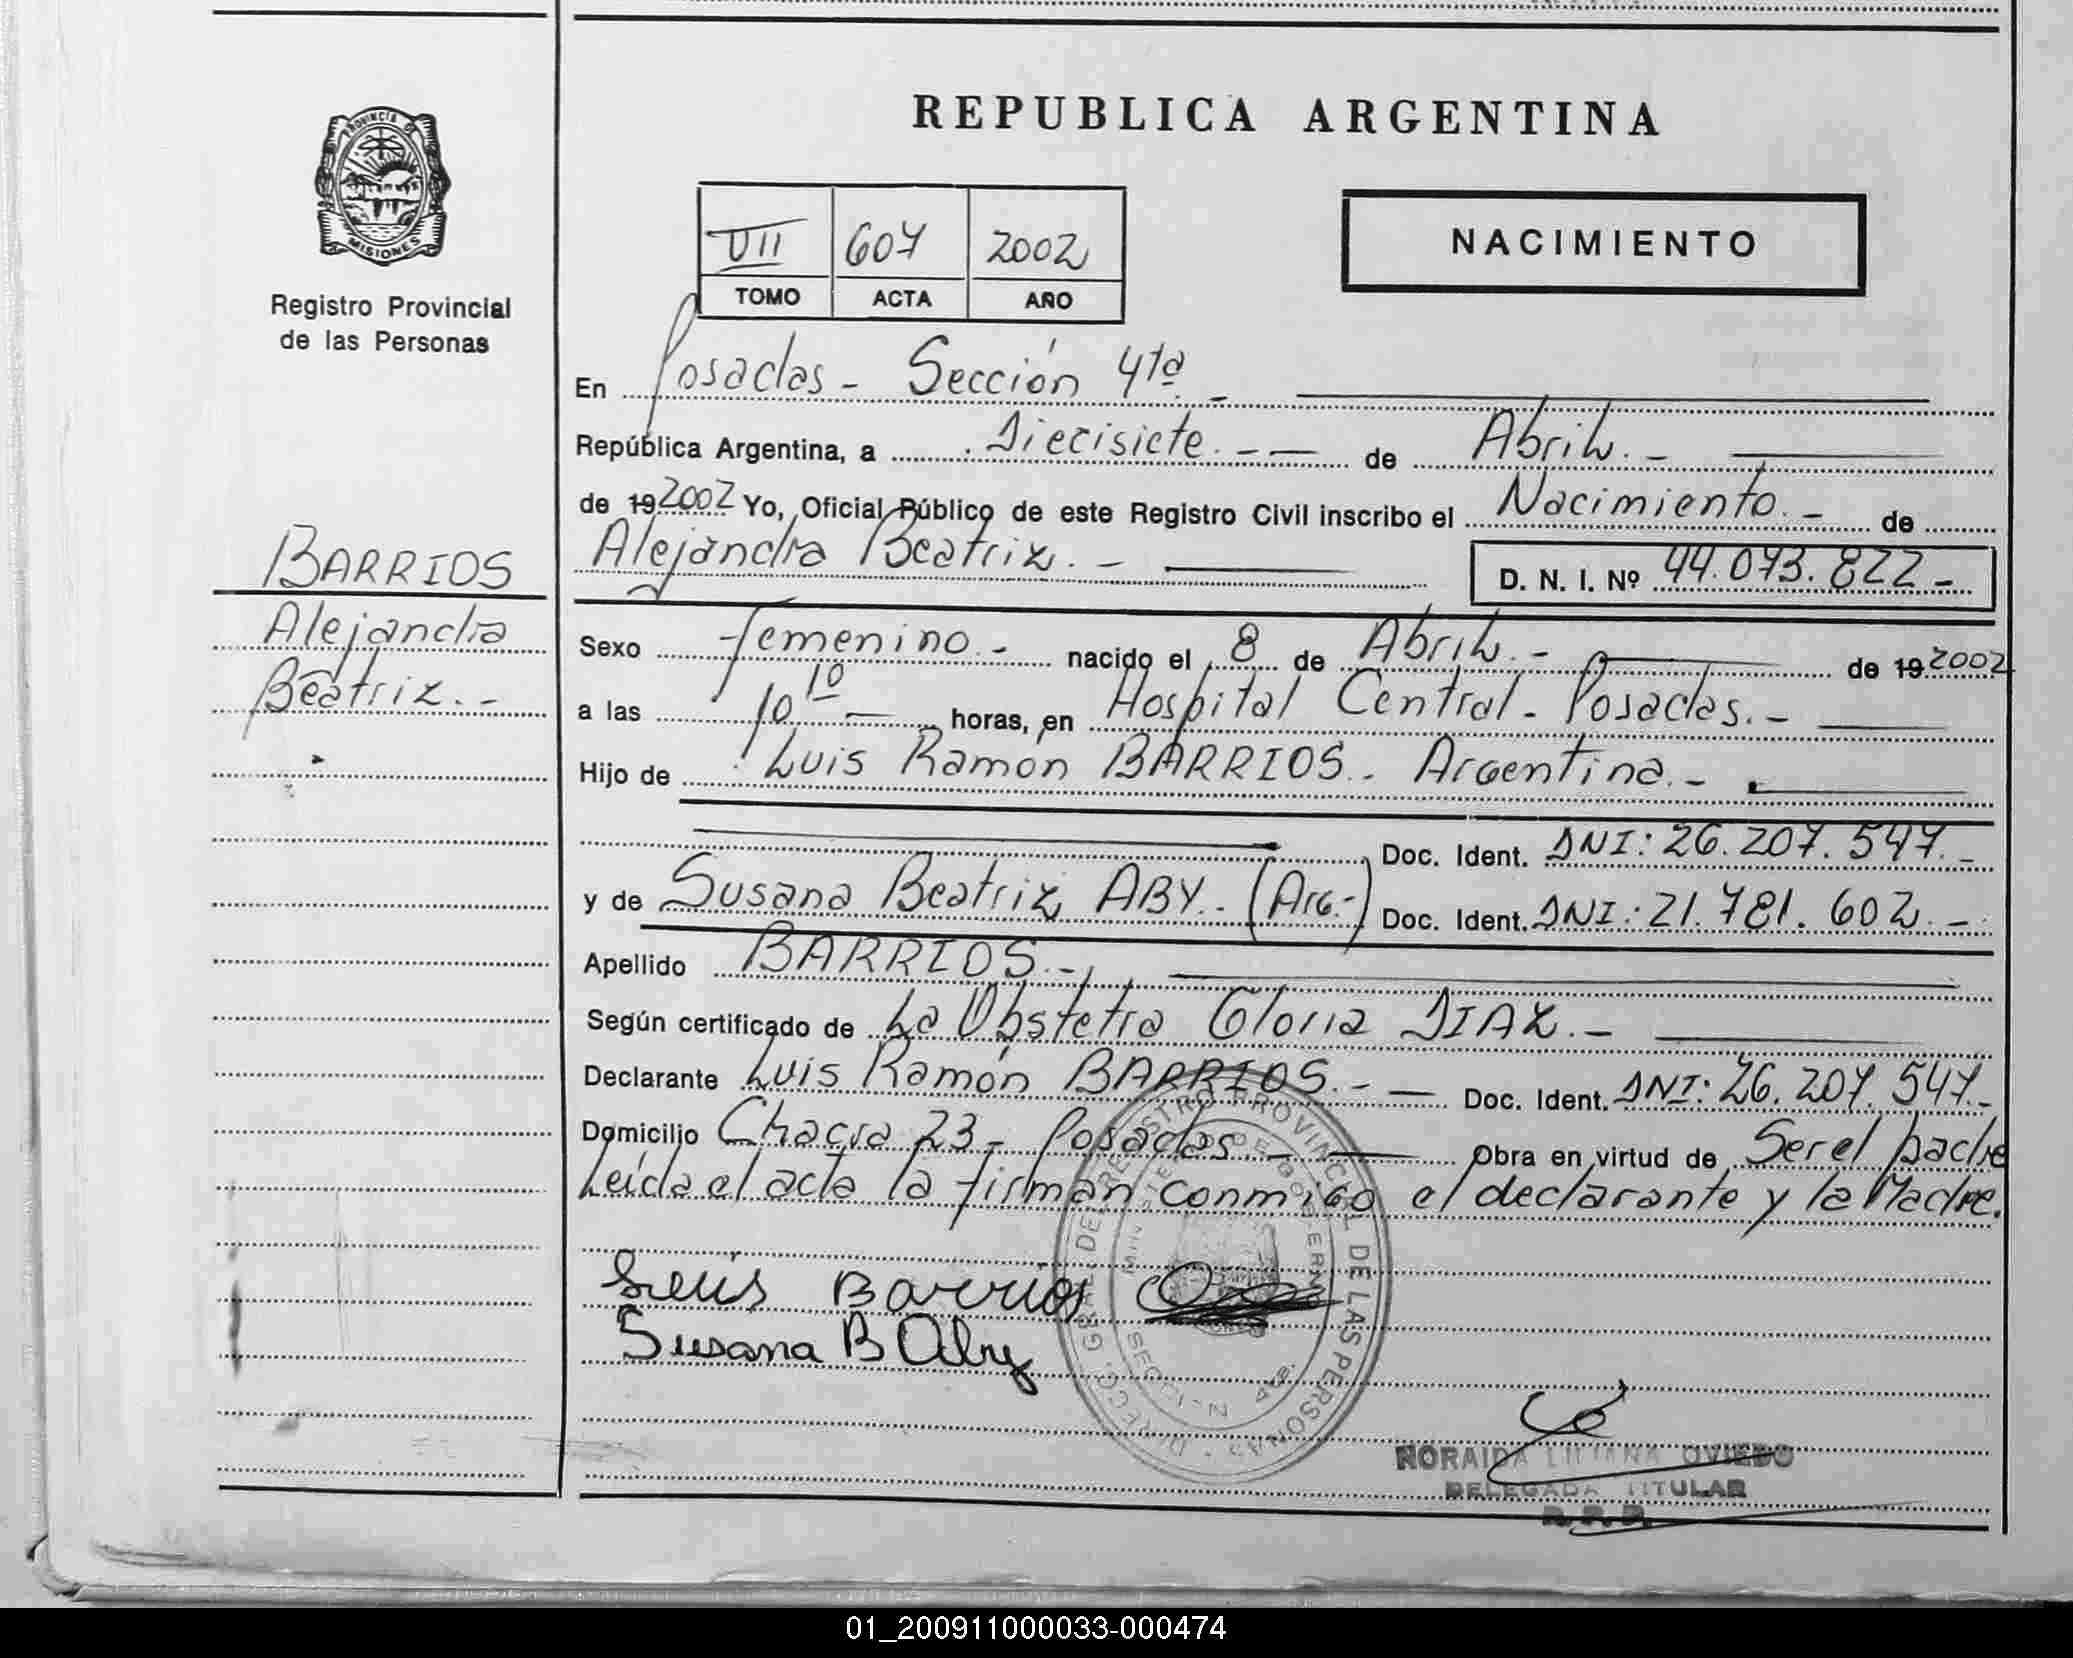 REPUBLICA ARGENTINA
PROVINCIA DE
MISIONES
Registro Provincial
de las Personas
VII 607 2002
TOMO ACTA AÑO
NACIMIENTO
En Posadas - Sección 4ta. -
República Argentina, a Diecisiete. - — de Abril. -
de 19 2002 Yo, Oficial Público de este Registro Civil inscribo el Nacimiento. - de
Alejandra Beatriz. - D. N. I. Nº 44.073.822 -
BARRIOS
Alejandra
Beatriz. -
Sexo femenino. - nacido el 8 de Abril. - de 19 2002
a las 10 10 — horas, en Hospital Central - Posadas. -
Hijo de Luis Ramon BARRIOS. - Argentina. -
Doc. Ident. DNI: 26.207.547. -
y de Susana Beatriz ABY. - (Arg. -) Doc. Ident. DNI: 21.781.602. -
Apellido BARRIOS. -
Según certificado de La Obstetra Gloria DIAZ. -
Declarante Luis Ramón BARRIOS. - — Doc. Ident. DNI: 26.207.547. -
Domicilio Chacra 23 - Posadas. - — Obra en virtud de Ser el padre
Leída el acta la firman conmigo el declarante y la Madre.
Luis Barrios
Susana B Aby
DIRECC. GRAL. DE REGISTRO PROVINCIAL DE LAS PERSONAS
MINISTE DE GOBIERNO
SECCION 4ta.
NORAIDA LILIANA OVIEDO
DELEGADA TITULAR
R. P. P.
01_200911000033-000474